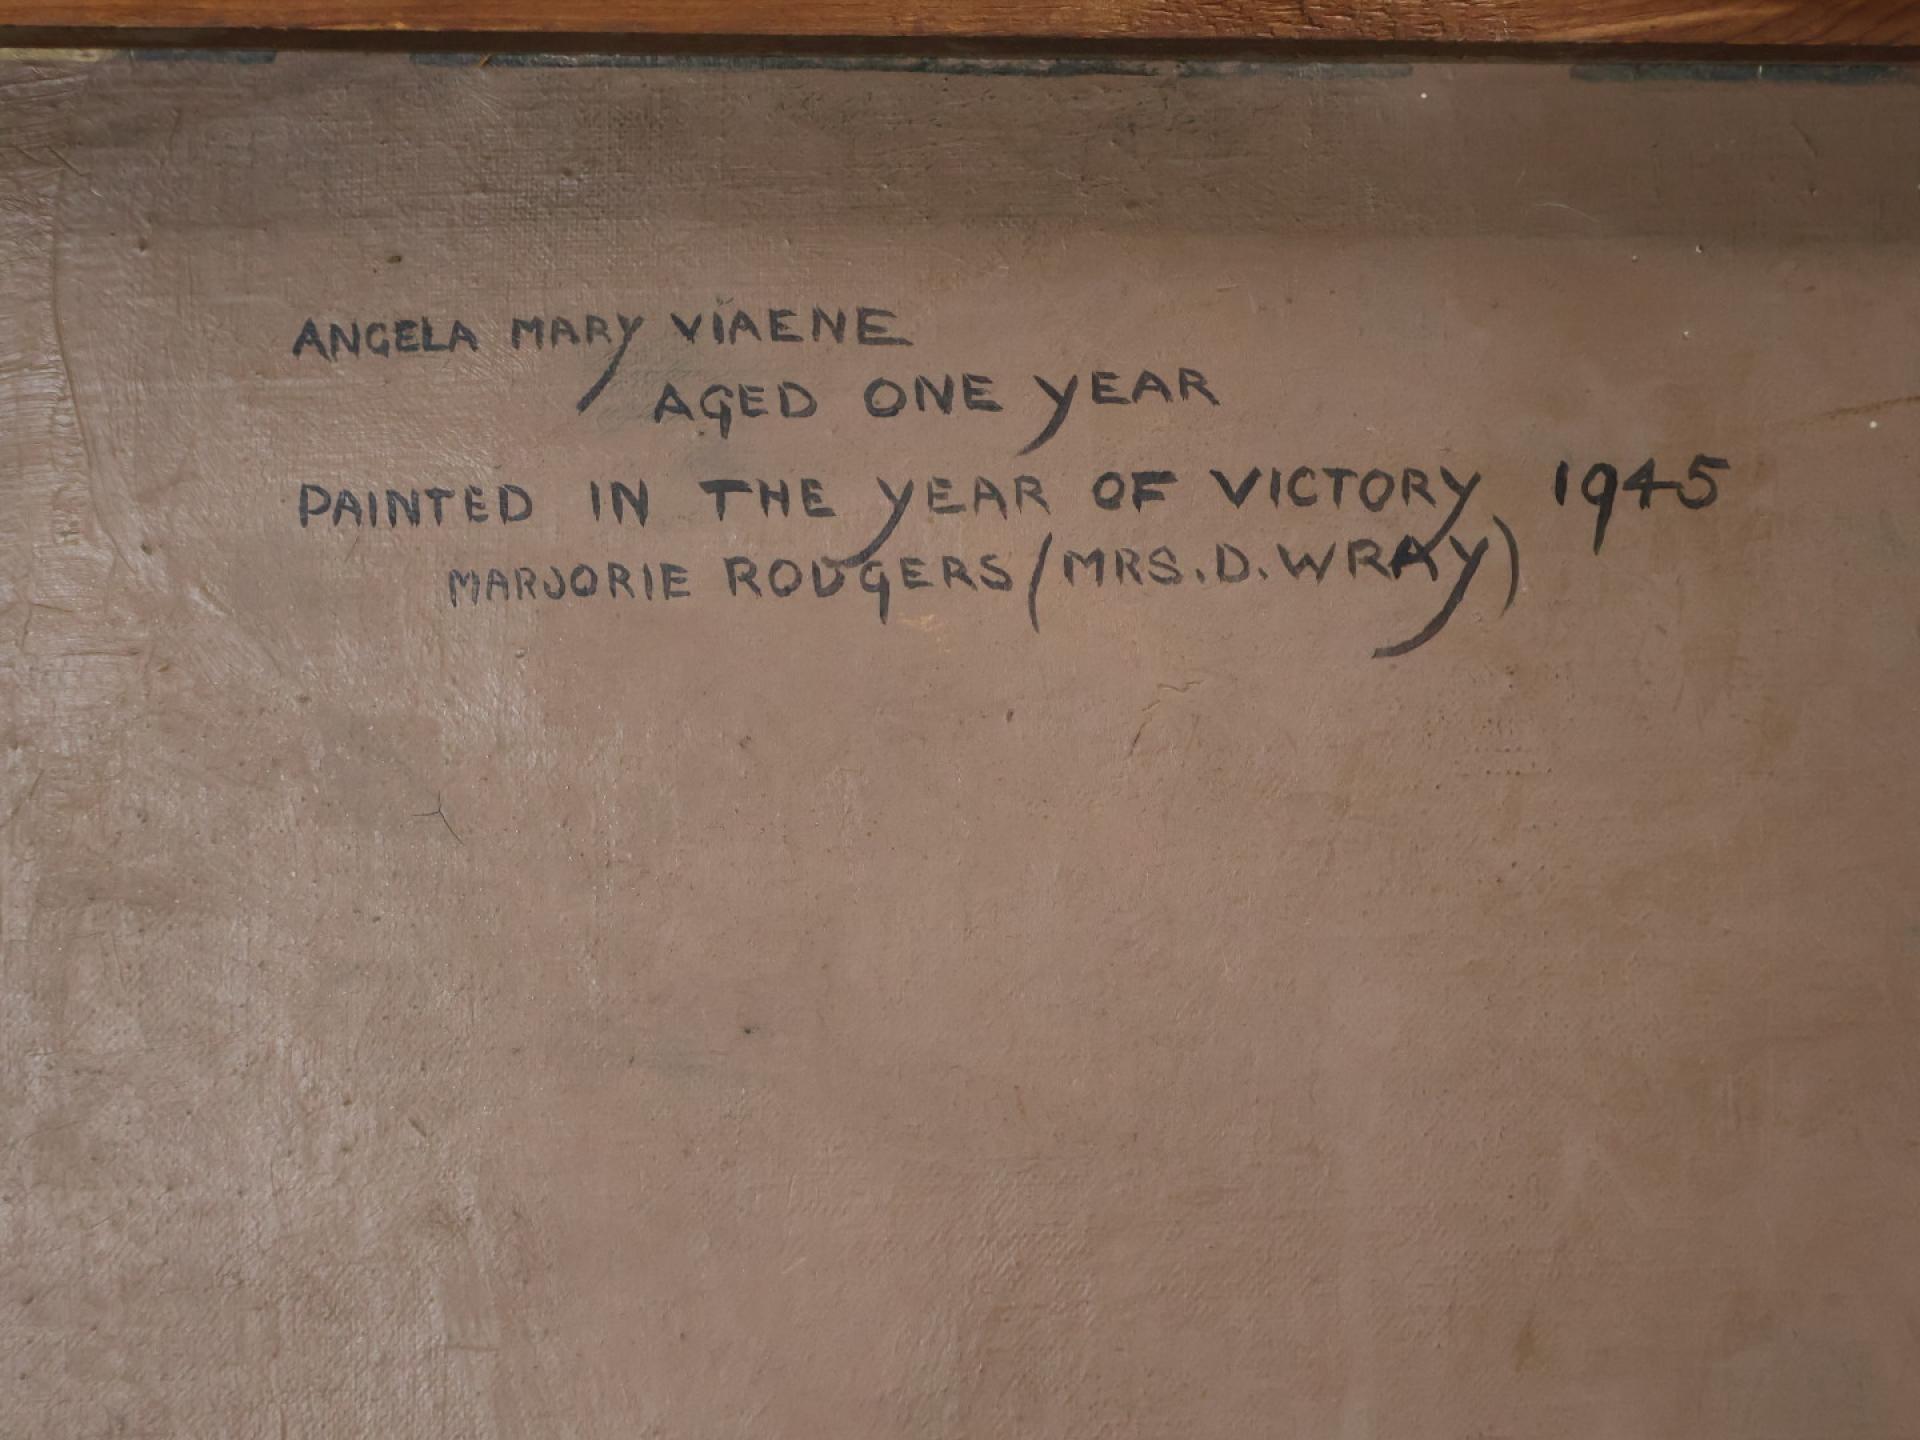 ANGELA MARY VIAENE
AGED ONE YEAR
PAINTED IN THE YEAR OF VICTORY 1945
MARJORIE RODGERS (MRS. D. WRAY)